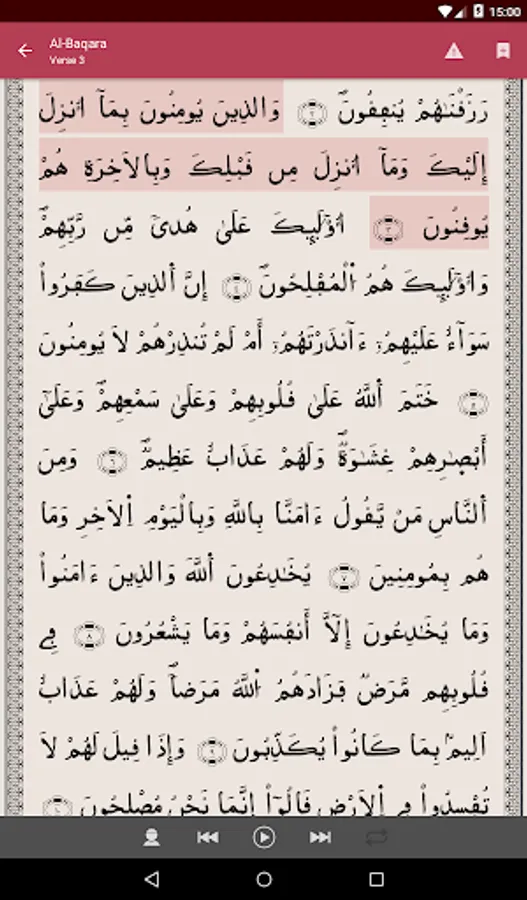 15:00
Al-Baqara
Verse 3
رَزَقْنَٰهُمْ يُنفِقُونَۖ ٢ وَالذِينَ يُومِنُونَ بِمَآ أُنزِلَ
إِلَيْكَ وَمَآ أُنزِلَ مِن قَبْلِكَ وَبِالَاخِرَةِ هُمْ
يُوقِنُونَ ٣ أُوْلَٰٓئِكَ عَلَىٰ هُدىٗ مِّن رَّبِّهِمْۖ
وَأُوْلَٰٓئِكَ هُمُ اُلْمُفْلِحُونَۖ ٤ إِنَّ اَلذِينَ كَفَرُواْ
سَوَآءٌ عَلَيْهِمُۥٓ ءَآنذَرْتَهُمُۥٓ أَمْ لَمْ تُنذِرْهُمْ لَا يُومِنُونَ
٥ خَتَمَ اَللَّهُ عَلَىٰ قُلُوبِهِمْ وَعَلَىٰ سَمْعِهِمْۖ وَعَلَىٰٓ
أَبْصٰ۪رِهِمْ غِشَٰوَةٞۖ وَلَهُمْ عَذَابٌ عَظِيمٞۖ ٦ وَمِنَ
اَلنَّاسِ مَنْ يَّقُولُ ءَامَنَّا بِاللَّهِ وَبِالْيَوْمِ اِلَاخِرِ وَمَا
هُم بِمُومِنِينَ ٧ يُخَٰدِعُونَ اَللَّهَ وَالذِينَ ءَامَنُواْ
وَمَا يُخَٰدِعُونَ إِلَّآ أَنفُسَهُمْ وَمَا يَشْعُرُونَ ٨ فِي
قُلُوبِهِم مَّرَضٞ فَزَادَهُمُ اُللَّهُ مَرَضاٗۖ وَلَهُمْ عَذَابٌ
اَلِيمُۢ بِمَا كَانُواْ يُكَذِّبُونَۖ ٩ وَإِذَا قِيلَ لَهُمْ لَا
تُفْسِدُواْ فِي اِلَارْضِ قَالُوٓاْ إِنَّمَا نَحْنُ مُصْلِحُونَۖ ١٠